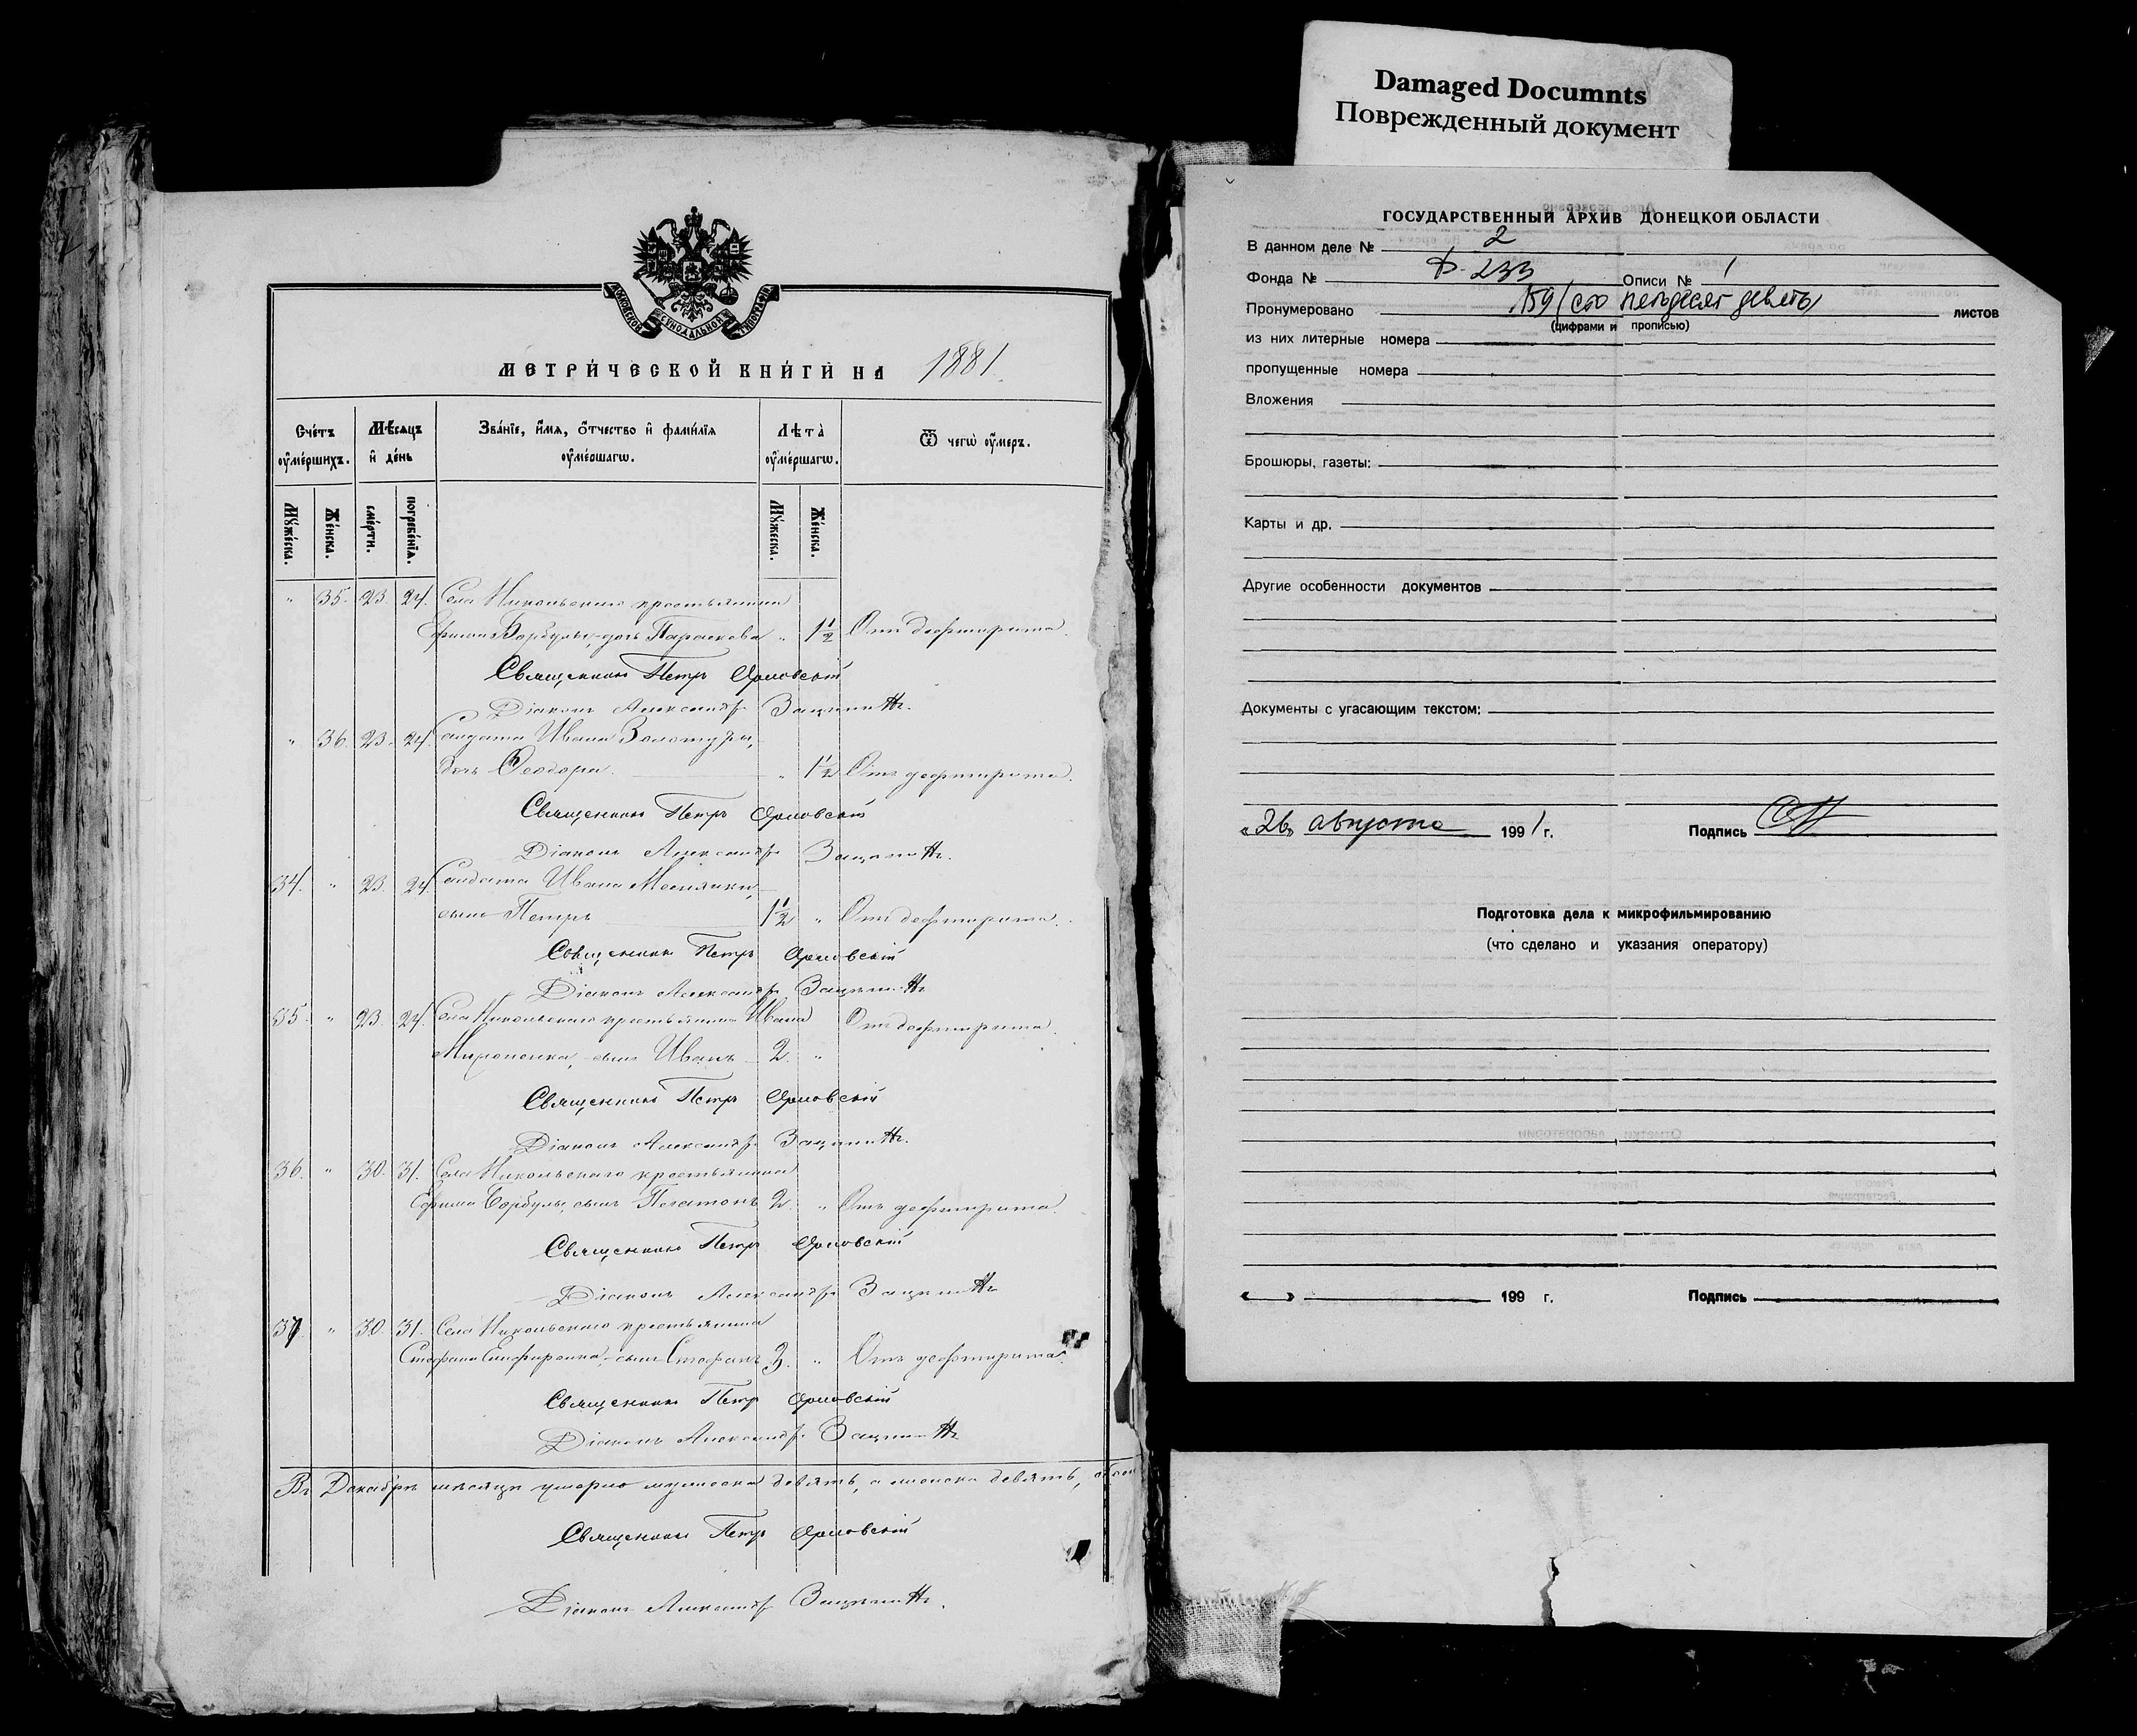 Damaged Documnts
Поврежденный документ
МОСКОВСКОЙ СѴНОДАЛЬНОЙ ТИПОГРАФІИ
МЕТРИ́ЧЕСКОЙ КНИ́ГИ НА 1881.
Сче́тъ ᲂу҆ме́ршихъ.
Мѣ́сяцъ и҆ де́нь
Зва́нїе, и҆́мя, ѻ҆́тчество и҆ фами́лїя ᲂу҆ме́ршагѡ.
Лѣта̀ ᲂу҆ме́ршагѡ.
Ѿ чегѡ̀ ᲂу҆́меръ.
Мꙋ́жеска.
Же́нска.
сме́рти.
погребе́нїѧ.
Мꙋ́жеска.
Же́нска.
" 35. 23. 24. Села Никольскаго крестьянина
Ефима Барбулы, дочь Параскева " 1½ Отъ дифтирита.
Священникъ Петръ Орловскій
Діаконъ Александръ
" 36. 23. 24. Солдата Ивана
дочь Ѳеодора. " 1½ Отъ дифтирита.
Священникъ Петръ Орловскій
Діаконъ Александръ
34. " 23. 24. Солдата Ивана
сынъ Петръ 1½ " Отъ дифтирита.
Священникъ Петръ Орловскій
Діаконъ Александръ
35. " 23. 24. Села Никольскаго крестьянина Ивана Отъ дифтирита.
Мироненка, сынъ Иванъ 2. "
Священникъ Петръ Орловскій
Діаконъ Александръ
36. " 30. 31. Села Никольскаго крестьянина
Ефима Барбулы, сынъ Платонъ 2. " Отъ дифтирита.
Священникъ Петръ Орловскій
Діаконъ Александръ
37. " 30. 31. Села Никольскаго крестьянина
Стефана сынъ Стефанъ 3. " Отъ дифтирита.
Священникъ Петръ Орловскій
Діаконъ Александръ
Въ Декабрѣ мѣсяцѣ умерло мужеска девять, а женска девять,
Священникъ Петръ Орловскій
Діаконъ Александръ
ГОСУДАРСТВЕННЫЙ АРХИВ ДОНЕЦКОЙ ОБЛАСТИ
В данном деле № 2
Фонда № Ф-233 Описи № 1
Пронумеровано 159 (сто пятьдесят девять) листов
(цифрами и прописью)
из них литерные номера
пропущенные номера
Вложения
Брошюры, газеты:
Карты и др.
Другие особенности документов
Документы с угасающим текстом:
«26» августа 1991 г. Подпись
Подготовка дела к микрофильмированию
(что сделано и указания оператору)
« » 199 г. Подпись